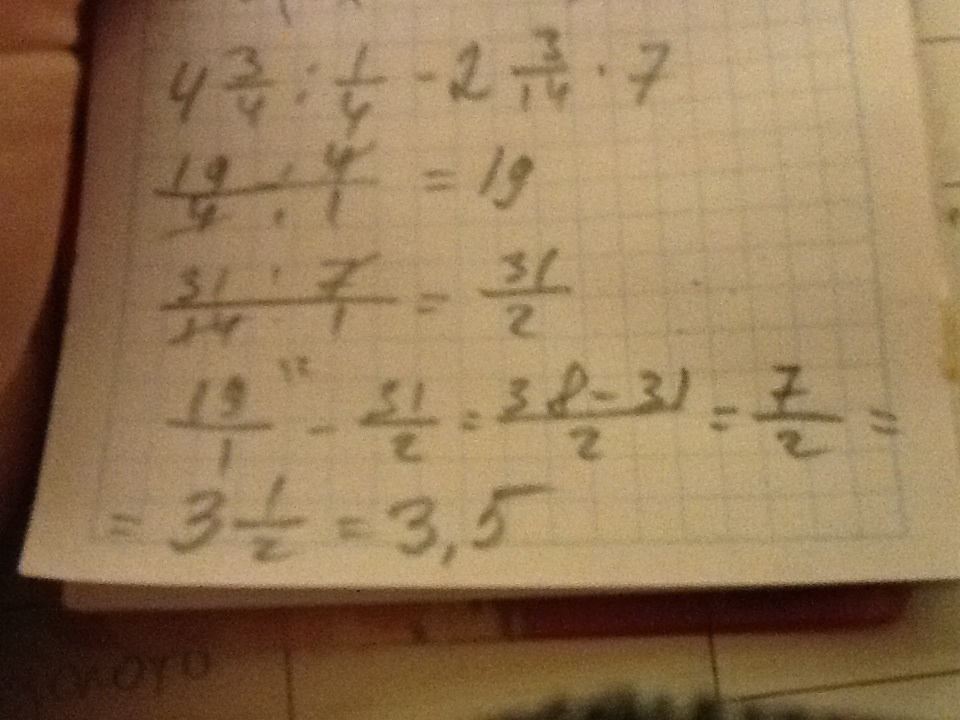 4 3/4 : 1/4 - 2 3/14 · 7
19/4 · 4/1 = 19
31/14 · 7/1 = 31/2
19/1 - 31/2 = 38-31/2 = 7/2 =
= 3 1/2 = 3,5